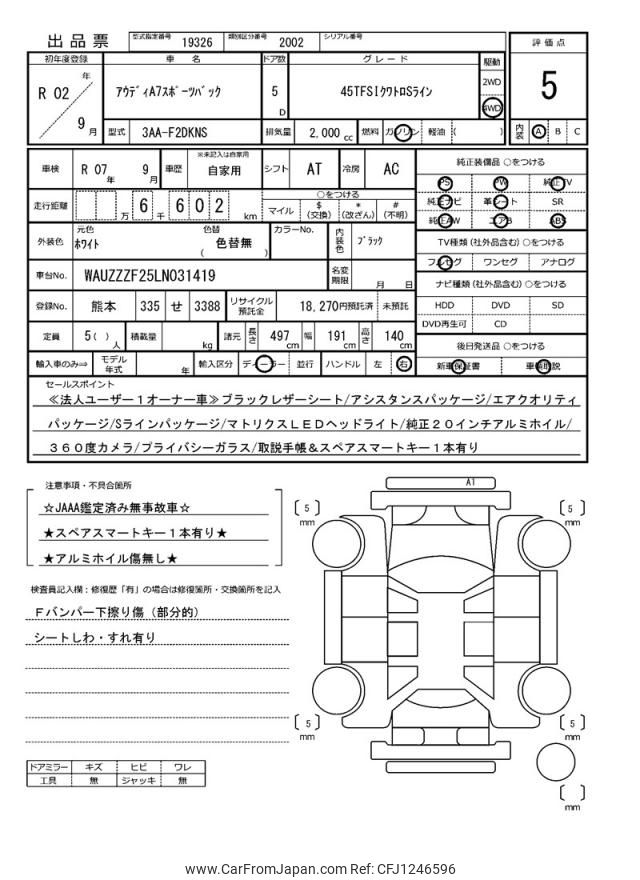 出品票 型式指定番号 19326 類別区分番号 2002 シリアル番号
評価点
初年度登録 車名 ドア数 グレード 駆動
R 02 年 9 月
アウディA7スポーツバック
5 D
45TFSIクワトロSライン
2WD
4WD
5
型式 3AA-F2DKNS 排気量 2,000 cc 燃料 ガソリン 軽油 ( )
内装 A B C
車検 R 07 年 9 月 車歴 ※未記入は自家用 自家用 シフト AT 冷房 AC
純正装備品 ○をつける
PS PW 純正TV
純正ナビ 革シート SR
純正AW エアB ABS
走行距離 万 6 千 6 0 2 km
○をつける
マイル $ (交換) * (改ざん) # (不明)
外装色 元色 ホワイト 色替 ( 色替無 ) カラーNo. 内装色 ブラック
TV種類 (社外品含む) ○をつける
フルセグ ワンセグ アナログ
車台No. WAUZZZF25LN031419 名変期限 月 日
ナビ種類 (社外品含む) ○をつける
HDD DVD SD
DVD再生可 CD
登録No. 熊本 335 せ 3388 リサイクル預託金 18,270円預託済 未預託
定員 5( ) 人 積載量 kg 諸元 長さ 497 cm 幅 191 cm 高さ 140 cm
後日発送品 ○をつける
新車保証書 車輌取説
輸入車のみ⇒ モデル年式 年 輸入区分 ディーラー 並行 ハンドル 左 右
セールスポイント
≪法人ユーザー1オーナー車≫ブラックレザーシート/アシスタンスパッケージ/エアクオリティ
パッケージ/Sラインパッケージ/マトリクスLEDヘッドライト/純正20インチアルミホイル/
360度カメラ/プライバシーガラス/取説手帳&スペアスマートキー1本有り
注意事項・不具合箇所
☆JAAA鑑定済み無事故車☆
★スペアスマートキー1本有り★
★アルミホイル傷無し★
検査員記入欄：修復歴「有」の場合は修復箇所・交換箇所を記入
Fバンパー下擦り傷（部分的）
シートしわ・すれ有り
A1
5 mm
5 mm
5 mm
5 mm
mm
ドアミラー キズ ヒビ ワレ
工具 無 ジャッキ 無
www.CarFromJapan.com Ref: CFJ1246596